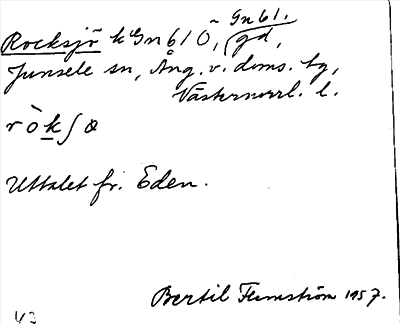 Gn 61.
Rocksjö k Gn 61 Ö, gd,
Junsele sn, Ång. v. doms. hg,
Västernorrl. l.
rò̊k∫ø
Uttalet fr. Eden.
Bertil Flemström 1957.